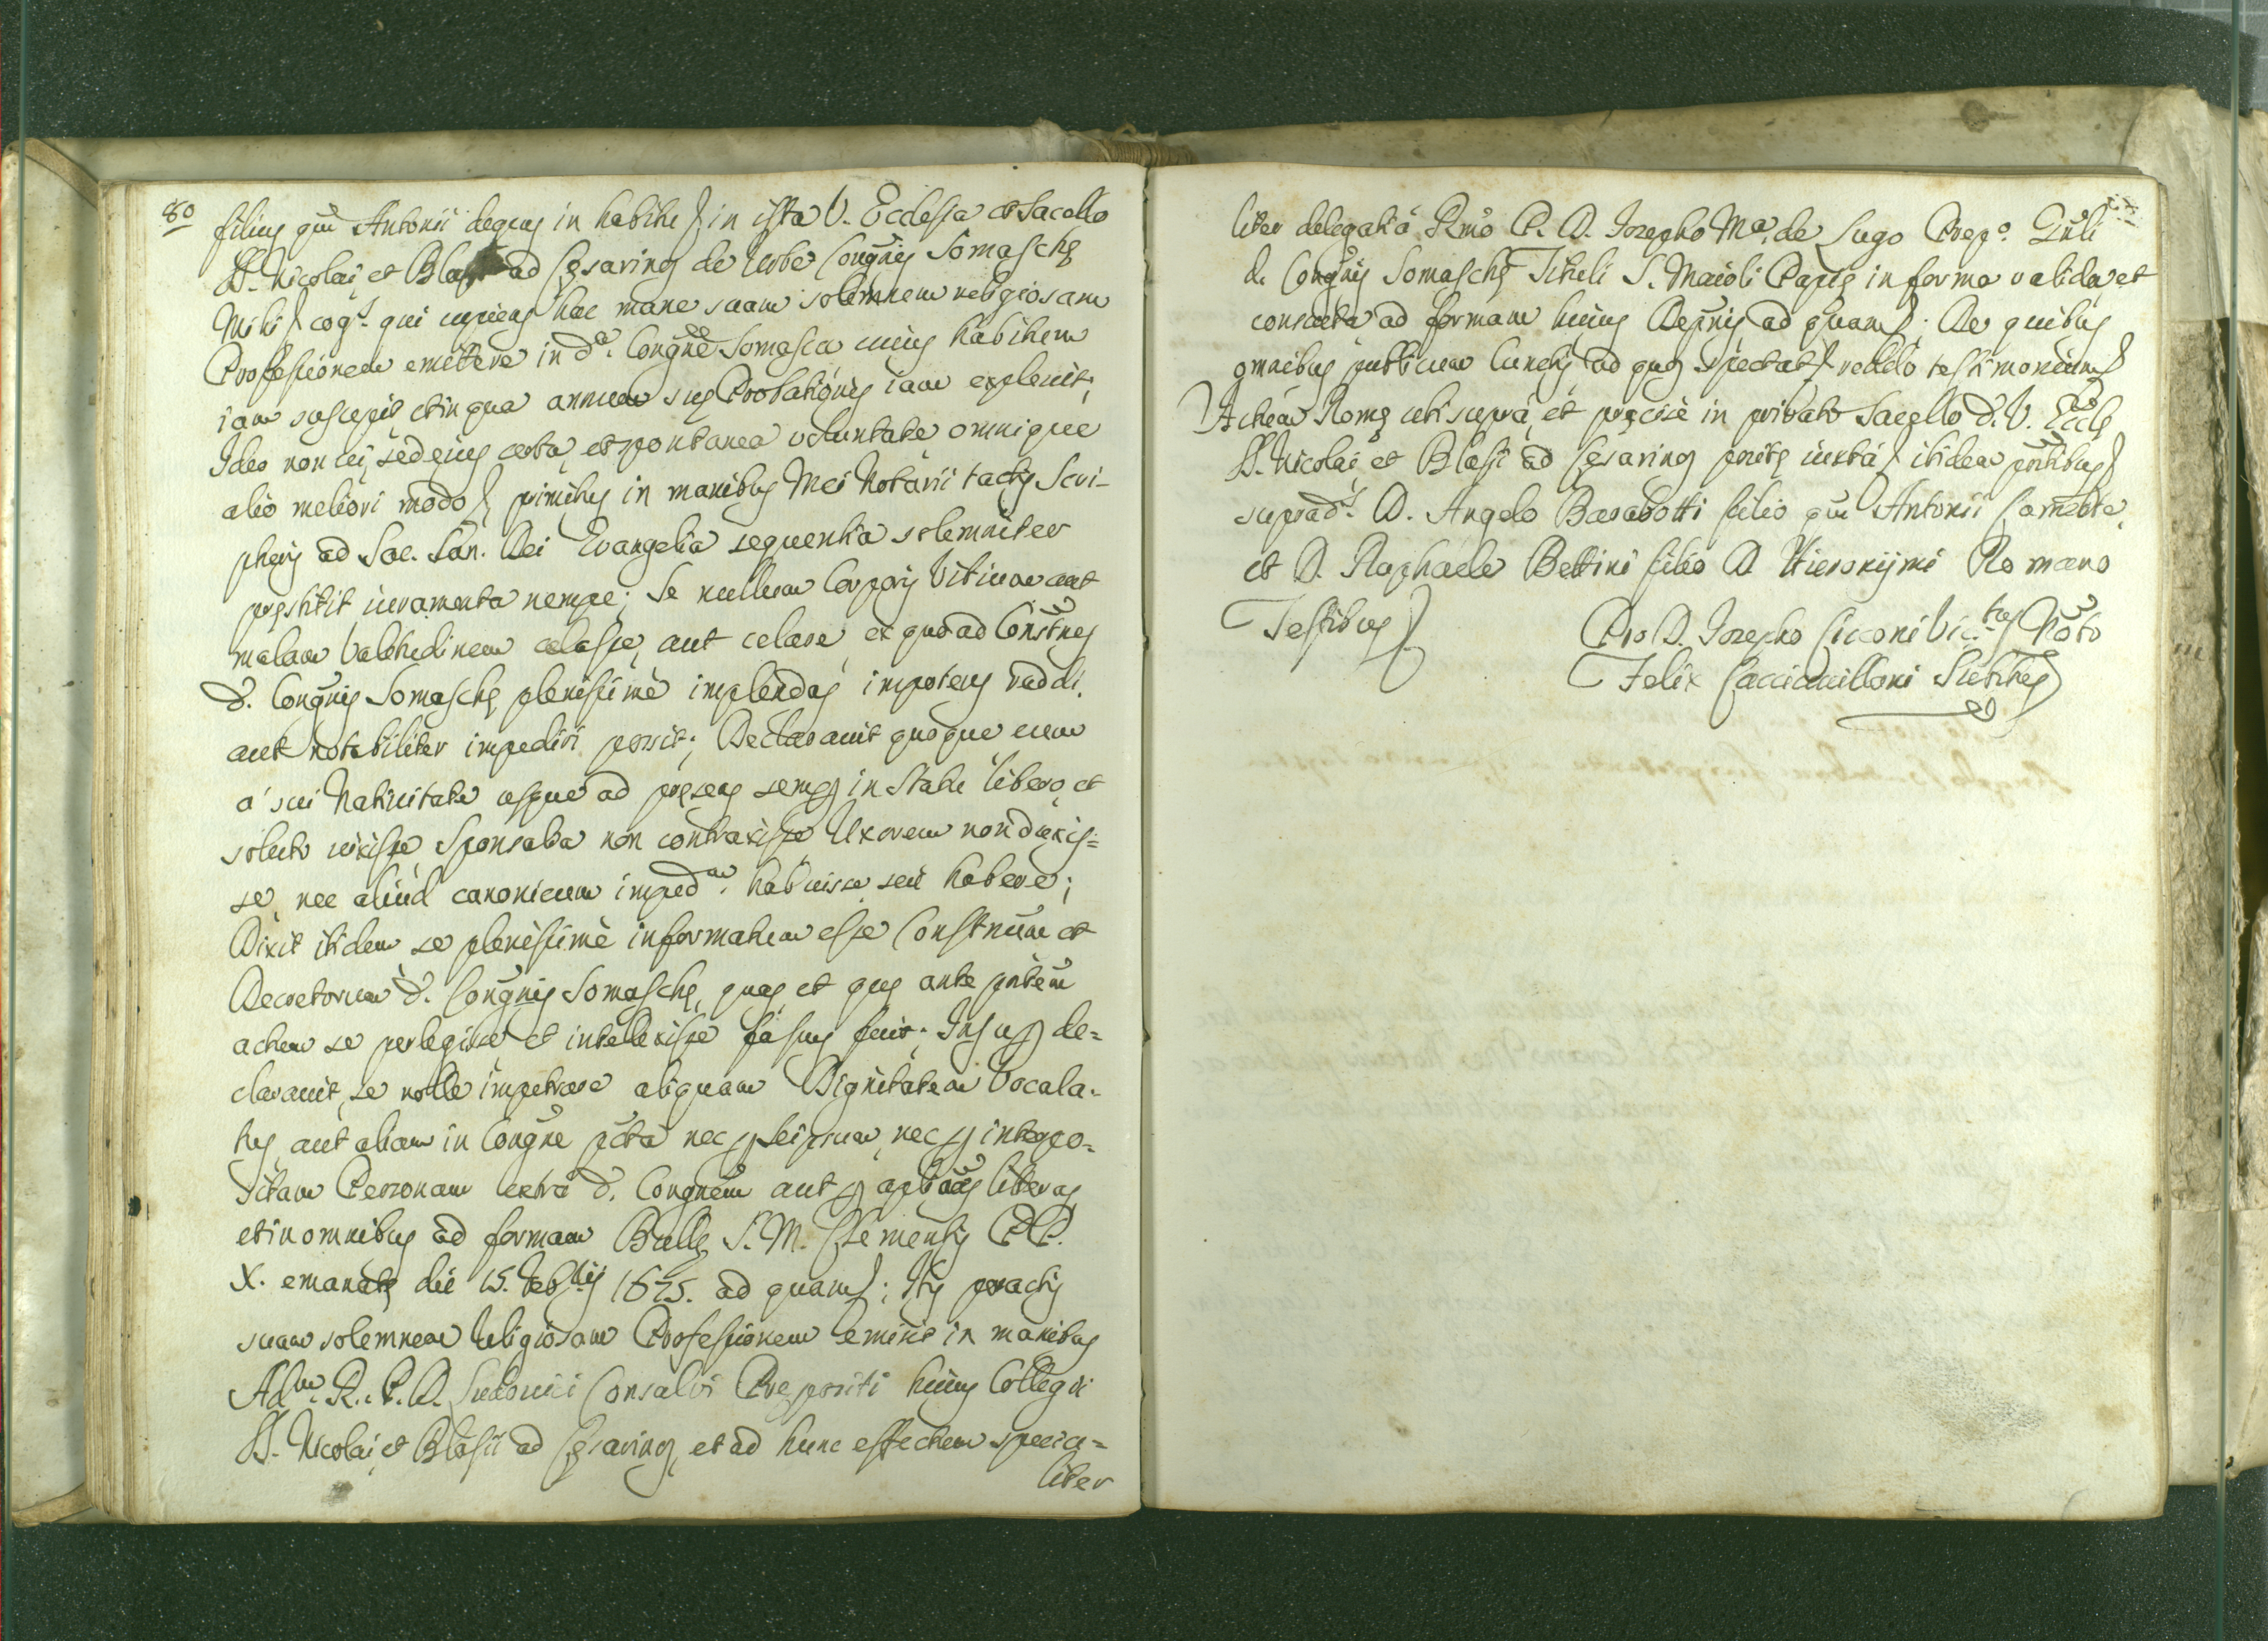 80
filius qm Antonii degens in habitu in ista V. Ecclesia et Sacello
SS. Nicolai, et Blasii ad Cesarinos de Urbe Congnis Somasche
Mihi cog.s qui cupiens hac mane suam solemnem religiosam
Professionem emittere in d.a Congne Somasca cuius habitum
iam suscepit et in qua annum sue Probationis iam explevit;
Ideo non vi, sed eius certa, et spontanea voluntate omnique
alio meliori modo primitus in manibus Mei Notarii tactis Scri-
pturis ad Sac. San. Dei Evangelia sequentia solemniter
prestitit iuramenta nempe; Se nullum Corporis Vitium aut
malam Valetudinem celasse, aut celare, et quo ad Constnes
d. Congnis Somasche plenissimè implendas impotens reddi,
aut notabiliter impediri possit; Declaravit quoque eum
à sui Nativitate usque ad presens semp in Statu libero, et
soluto vixisse, Sponsalia non contraxisse Uxorem non duxis=
se, nec aliud canonicum imped.m habuisse seù habere;
Dixit itidem se plenissimè informatum esse Constnum et
Decretorum d. Congnis Somasche, quas, et que ante pntem
actum se perlegisse et intellexisse fassus fuit; Insup de=
claravit, se nolle impetrare aliquam Dignitatem Vocala-
tus, aut aliam in Congne pcta nec p seipsum, nec p interpo=
sitam Personam extra d. Congnem aut p aplicas literas
et in omnibus ad formam Bulle S. M. Clementis PP.
X. emanate die 15. Febrii 1675. ad quam; Itis peractis
suam solemnem Religiosam Professionem emisit in manibus
Ad.m R. P. D. Ludovici Consalvi Prepositi huius Collegii
SS. Nicolai, et Blasii ad Cesarinos, et ad hunc effectum specia=
liter
liter delegati à Rmo P. D. Iozepho M.a de Lugo Prep.o Gnli
d. Congnis Somasche Tituli S. Maioli Papie in forma valida et
consueta ad formam huius Depnis ad quam; De quibus
omnibus publicum Cunctis ad quos spectat reddo testimonium
Actum Rome uti supra, et precisè in privato Sacello d. V. Eccle
SS. Nicolai, et Blasii ad Cesarinos posite iuxta itidem pntibus
suprad.s D. Angelo Barabotti filio qm Antonii
et D. Raphaele Bettini filio D. Hieronijmi Romano
Testibus
Pro D. Iozepho Cicconi Vic.tus Noto
Felix Substitus